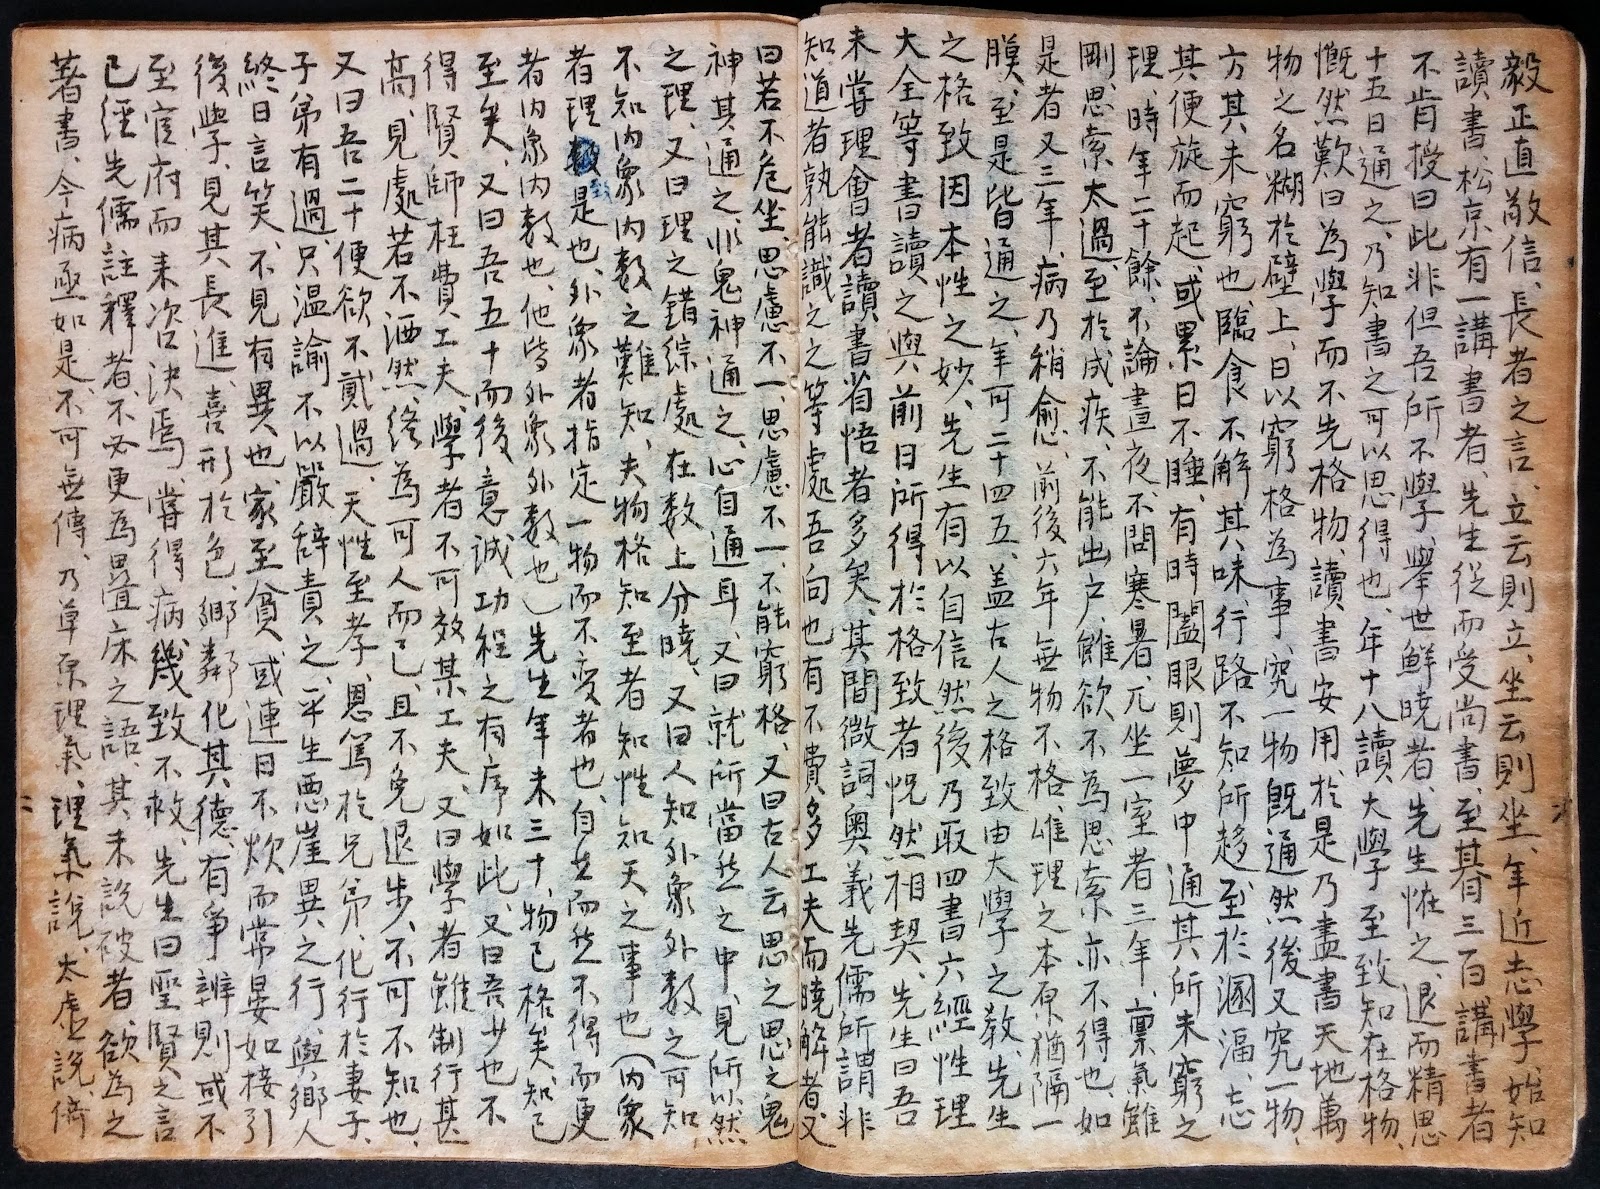 毅正直敬信、長者之言、立云則立、坐云則坐、年近志學、始知
讀書、松京有一講書者、先生從而受尚書、至朞三百、講書者
不肯授曰此非但吾所不學、擧世鮮曉者、先生怪之、退而精思
十五日通之、乃知書之可以思得也、年十八讀大學至致知在格物、
慨然歎曰為學而不先格物、讀書安用、於是乃盡書天地萬
物之名糊於壁上、日以窮格為事、究一物旣通然後又究一物、
方其未窮也、臨食不解其味、行路不知所趍、至於溷湢、忘
其便旋而起、或累日不睡、有時闔眼則夢中通其所未窮之
理、時年二十餘、不論晝夜、不問寒暑、兀坐一室者三年、禀氣雖
剛、思索太過、至於成疾、不能出户、雖欲不為思索亦不得也、如
是者又三年、病乃稍愈、前後六年無物不格、唯理之本原猶隔一
膜、至是皆通之、年可二十四五、盖古人之格致由大學之教、先生
之格致因本性之妙、先生有以自信然後乃取四書六經性理
大全等書讀之與前日所得於格致者怳然相契、先生曰吾
未嘗理會者讀書省悟者多矣、其間微詞奧義先儒所謂非
知道者孰能識之之等處吾向也有不費多工夫而曉解者、又
曰若不危坐思慮不一、思慮不一、不能窮格、又曰古人云思之思之鬼
神其通之、非鬼神通之、心自通耳、又曰就所當然之中、見所以然
之理、又曰理之錯綜處在數上分曉、又曰人知外象外數之可知
不知内象内數之難知、夫物格知至者知性知天之事也(内象
者理數是也、外象者指定一物而不变者也、自克而然不得而更
者内象内数也、他皆外象外数也)先生年未三十、物已格矣、知已
至矣、又曰吾五十而後意誠、功程之有序如此、又曰吾少也不
得賢師枉費工夫、學者不可效某工夫、又曰學者雖制行甚
高、見處若不洒然、終為可人而已、且不免退步、不可不知也、
又曰吾二十便欲不貳過、天性至孝、恩篤於兄弟、化行於妻子、
子弟有過、只温諭不以嚴辞責之、平生惡崖異之行、與鄉人
終日言笑、不見有異也、家至貧、或連日不炊而常晏如、接引
後學、見其長進、喜形於色、鄉鄰化其德、有爭辨則或不
至官府而来咨決焉、嘗得病幾致不救、先生曰聖賢之言
已經先儒註釋者、不必更為疊床之語、其未說破者、欲為之
著書、今病亟如是、不可無傳、乃草原理氣、理氣說、太虛說、